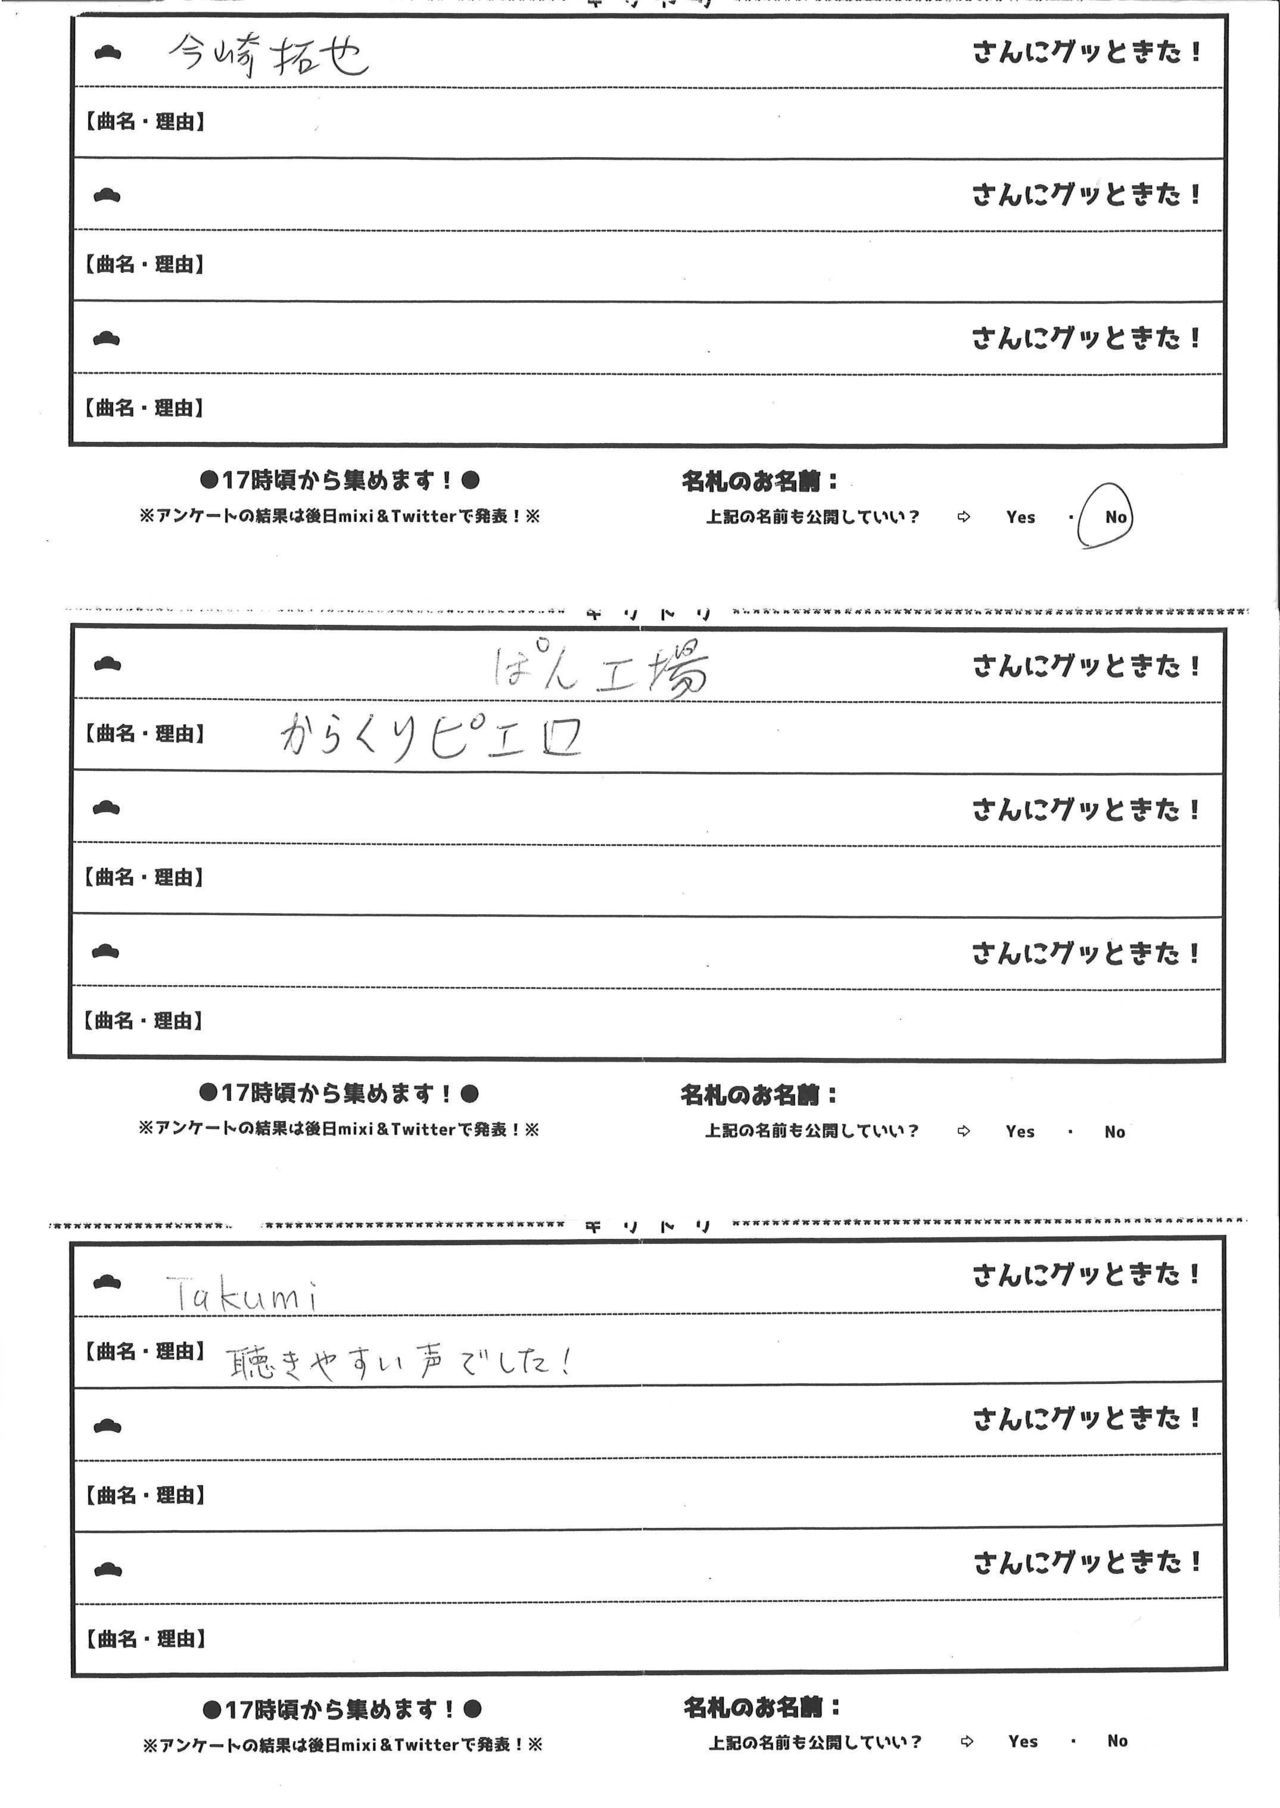 キリトリ
今崎拓也 さんにグッときた！
【曲名・理由】
さんにグッときた！
【曲名・理由】
さんにグッときた！
【曲名・理由】
●17時頃から集めます！● 名札のお名前：
※アンケートの結果は後日mixi＆Twitterで発表！※ 上記の名前も公開していい？ ⇨ Yes ・ No
キリトリ
ぱん工場 さんにグッときた！
【曲名・理由】 からくりピエロ
さんにグッときた！
【曲名・理由】
さんにグッときた！
【曲名・理由】
●17時頃から集めます！● 名札のお名前：
※アンケートの結果は後日mixi＆Twitterで発表！※ 上記の名前も公開していい？ ⇨ Yes ・ No
キリトリ
Takumi さんにグッときた！
【曲名・理由】 聴きやすい声でした！
さんにグッときた！
【曲名・理由】
さんにグッときた！
【曲名・理由】
●17時頃から集めます！● 名札のお名前：
※アンケートの結果は後日mixi＆Twitterで発表！※ 上記の名前も公開していい？ ⇨ Yes ・ No